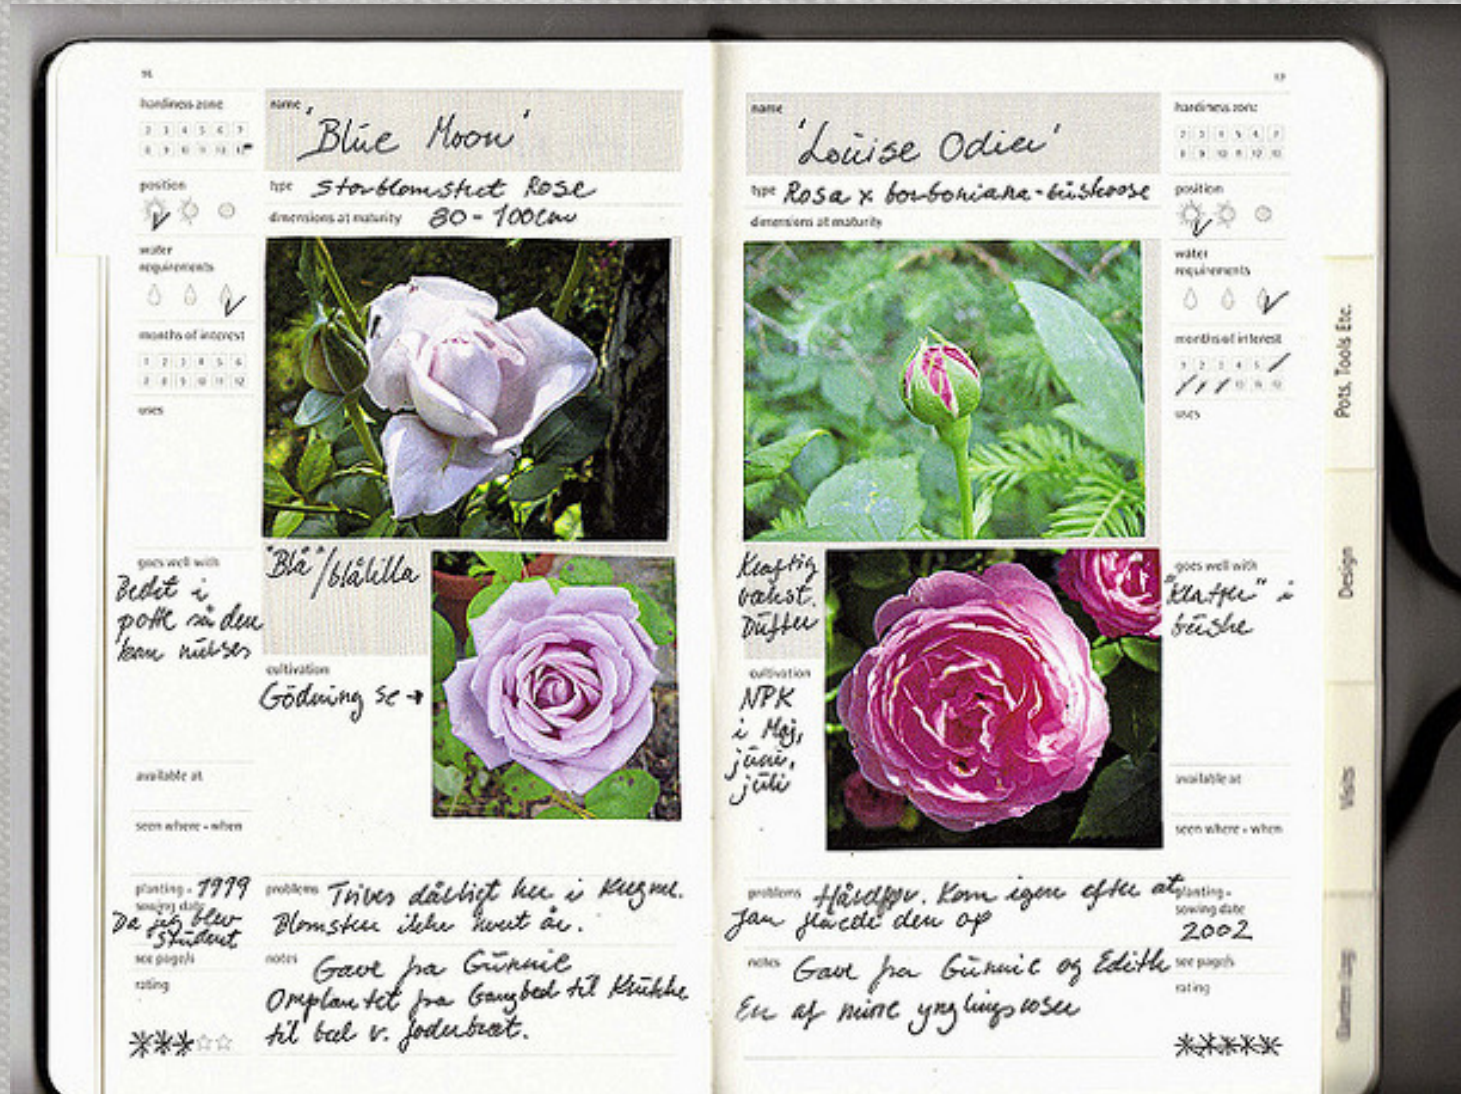 16
hardiness zone
2 3 4 5 6 7
8 9 10 11 12 13
position
water
requirements
months of interest
1 2 3 4 5 6
7 8 9 10 11 12
uses
goes well with
Bedst i
potte så den
kan nusses
available at
seen where + when
planting - 1979
sowing date
Da jeg blev
student
see page/s
rating
name
'Blue Moon'
type Storblomstret Rose
dimensions at maturity 80-100cm
"Blå"/blålilla
cultivation
Gödning se →
problems Trives dårligt her i
Blomster ikke hvert år.
notes Gave fra Gunnie
Omplantet fra Gangbed til Krukke
til bed v. foderbræt.
17
name
'Louise Odier'
type Rosa x borboniana - buskrose
dimensions at maturity
Kraftig
vækst.
Dufter
cultivation
NPK
i Maj,
juni,
juli
problems Hårdfør. Kom igen efter at
Jan gravede den op
notes Gave fra Gunnie og Edith
En af mine ynglingsroser
hardiness zone
2 3 4 5 6 7
8 9 10 11 12 13
position
water
requirements
months of interest
1 2 3 4 5
10 11 12
uses
goes well with
"Klatrer" i
buske
available at
seen where + when
planting -
sowing date
2002
see page/s
rating
Pots, Tools Etc.
Design
Visits
Garden log